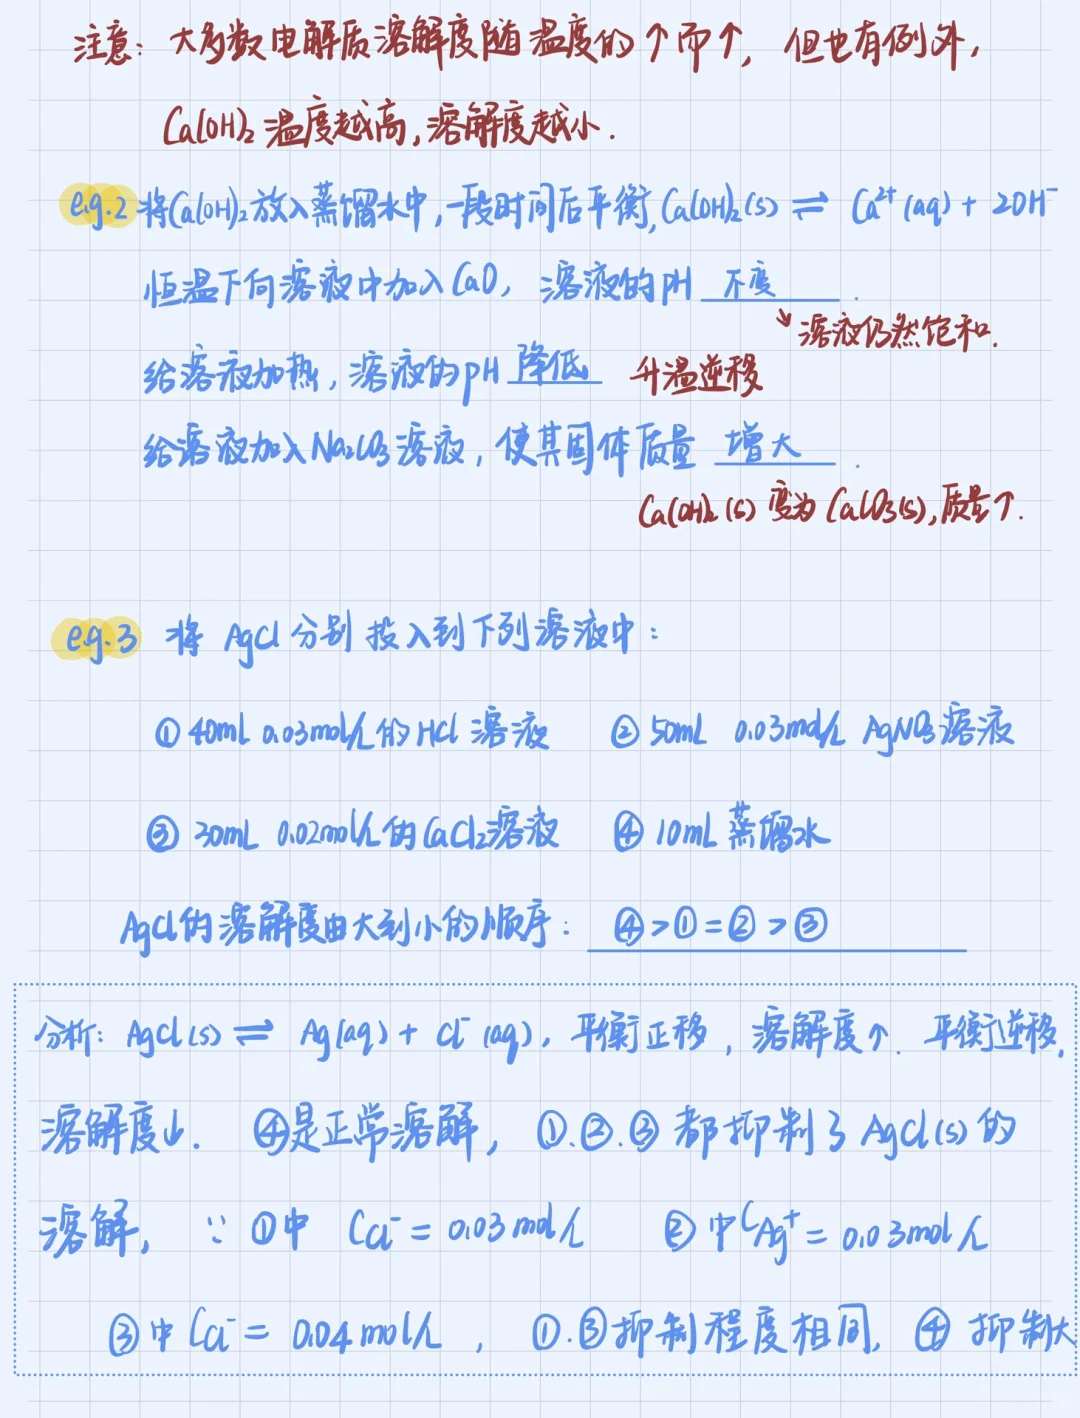 注意：大多数电解质溶解度随温度的↑而↑，但也有例外，
Ca(OH)₂温度越高，溶解度越小.
e.g.2 将Ca(OH)₂放入蒸馏水中，一段时间后平衡，Ca(OH)₂(s) ⇌ Ca²⁺(aq) + 2OH⁻
恒温下向溶液中加入CaO，溶液的pH 不变.
↘溶液仍然饱和.
给溶液加热，溶液的pH 降低 升温逆移
给溶液加入Na₂CO₃溶液，使其固体质量 增大.
Ca(OH)₂(s) 变为 CaCO₃(s)，质量↑.
e.g.3 将 AgCl 分别投入到下列溶液中：
① 40mL 0.03mol/L的HCl 溶液 ② 50mL 0.03mol/L AgNO₃溶液
③ 30mL 0.02mol/L的CaCl₂溶液 ④ 10mL 蒸馏水
AgCl的溶解度由大到小的顺序： ④>①=②>③
分析：AgCl(s) ⇌ Ag(aq) + Cl⁻(aq)，平衡正移，溶解度↑. 平衡逆移，
溶解度↓. ④是正常溶解，①.②.③ 都抑制了 AgCl(s) 的
溶解， ∵ ①中 CCl⁻ = 0.03 mol/L ② 中CAg⁺ = 0.03mol/L
③中 CCl⁻ = 0.04 mol/L ， ①.③抑制程度相同，④ 抑制大